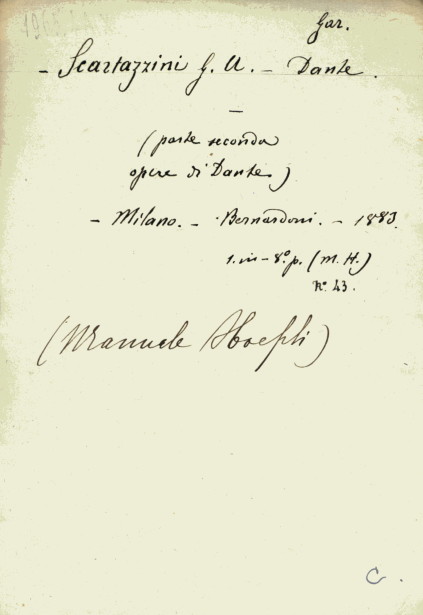 Gar.
- Scartazzini G. A. - Dante.
-
(parte seconda
opere di Dante)
- Milano. - Bernardoni. - 1883.
1. in - 8º. p. (M. H.)
Nº. 43.
(Manuele Hoepli)
C.